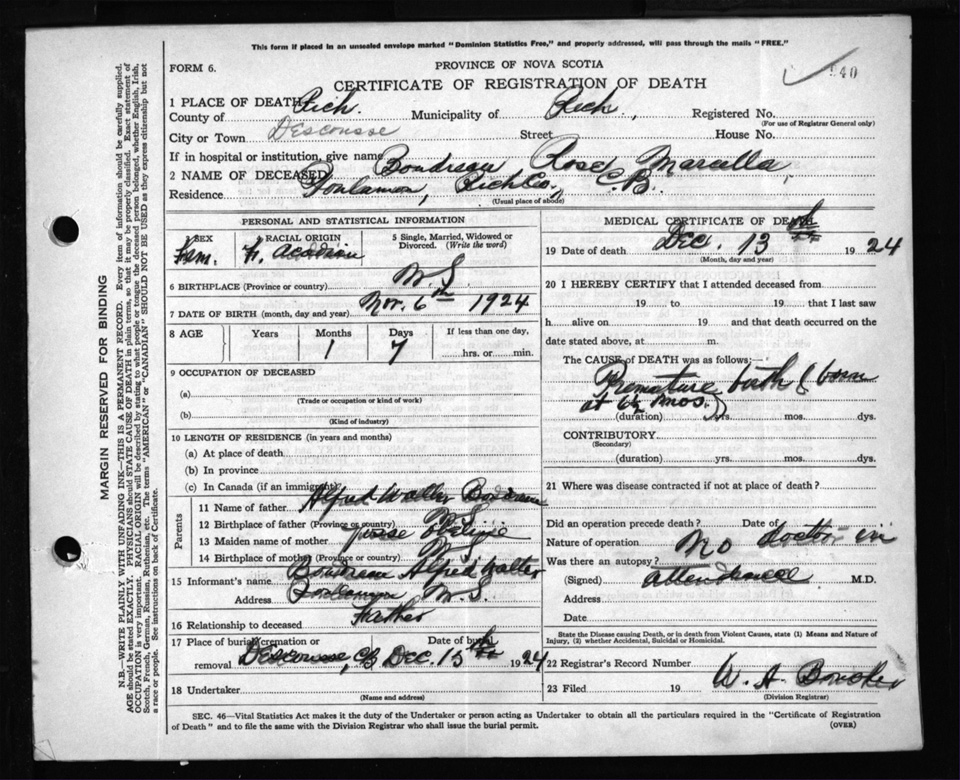 This form if placed in an unsealed envelope marked "Dominion Statistics Free," and properly addressed, will pass through the mails "FREE."
FORM 6.
PROVINCE OF NOVA SCOTIA
40
CERTIFICATE OF REGISTRATION OF DEATH
1 PLACE OF DEATH
County of Rich. Municipality of Rich., Registered No.
(For use of Registrar General only)
City or Town Descousse Street House No.
If in hospital or institution, give name
2 NAME OF DECEASED Boudreau Rose Marcella,
Residence Poulamon, Rich Co., C.B.
(Usual place of abode)
PERSONAL AND STATISTICAL INFORMATION
3 SEX Fem.
4 RACIAL ORIGIN Fr. Acadian
5 Single, Married, Widowed or Divorced. (Write the word)
6 BIRTHPLACE (Province or country) N.S
7 DATE OF BIRTH (month, day and year) Nov. 6th 1924
8 AGE Years Months Days If less than one day,
1 7 hrs. or min.
9 OCCUPATION OF DECEASED
(a)
(Trade or occupation or kind of work)
(b)
(Kind of industry)
10 LENGTH OF RESIDENCE (in years and months)
(a) At place of death
(b) In province
(c) In Canada (if an immigrant)
Parents
11 Name of father Alfred Walter Boudreau
12 Birthplace of father (Province or country) N.S.
13 Maiden name of mother
14 Birthplace of mother (Province or country) N.S
15 Informant's name Boudreau Alfred Walter
Address Poulamon N.S.
16 Relationship to deceased Father
17 Place of burial, cremation or removal Descousse, CB Date of burial Dec. 15th 1924
18 Undertaker
(Name and address)
MEDICAL CERTIFICATE OF DEATH
19 Date of death Dec. 13th 1924
(Month, day and year)
20 I HEREBY CERTIFY that I attended deceased from
19 to 19 that I last saw
h alive on 19 and that death occurred on the
date stated above, at m.
The CAUSE of DEATH was as follows:—
Premature birth (born
at 6½ mos.)
(duration) yrs. mos. dys.
CONTRIBUTORY
(Secondary)
(duration) yrs. mos. dys.
21 Where was disease contracted if not at place of death?
Did an operation precede death? Date of
Nature of operation No doctor in
Was there an autopsy?
(Signed) attendance M.D.
Address
Date
State the Disease causing Death, or in death from Violent Causes, state (1) Means and Nature of
Injury, (2) whether Accidental, Suicidal or Homicidal.
22 Registrar's Record Number
23 Filed 19 W. H.
(Division Registrar)
SEC. 46—Vital Statistics Act makes it the duty of the Undertaker or person acting as Undertaker to obtain all the particulars required in the "Certificate of Registration
of Death" and to file the same with the Division Registrar who shall issue the burial permit.
(OVER)
MARGIN RESERVED FOR BINDING
N.B.—WRITE PLAINLY WITH UNFADING INK—THIS IS A PERMANENT RECORD. Every item of information should be carefully supplied.
AGE should be stated EXACTLY. PHYSICIANS should STATE CAUSE OF DEATH in plain terms, so that it may be properly classified. Exact statement of
OCCUPATION is very important. RACIAL ORIGIN will be described by stating to what people or tongue the deceased person belonged, whether English, Irish,
Scotch, French, German, Russian, Ruthenian, etc. The terms "AMERICAN" or "CANADIAN" SHOULD NOT BE USED as they express citizenship but not
a race or people. See instructions on back of Certificate.